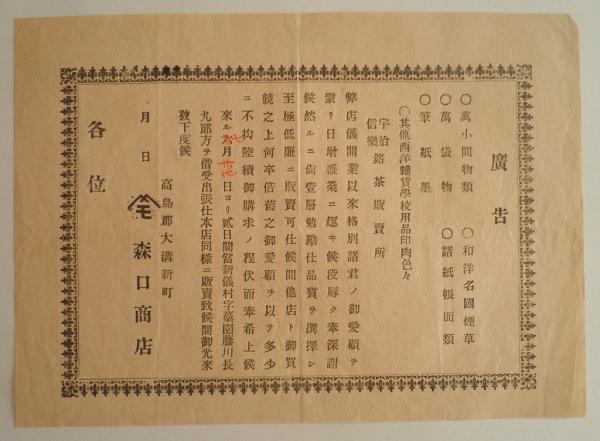 廣告
○萬小間物類 ○和洋名國煙草
○萬袋物 ○諸紙帳面類
○筆紙墨
○其他西洋雜貨學校用品印肉色々
宇治信樂銘茶販賣所
弊店儀開業以來格別諸君ノ御愛顧ヲ
蒙リ日增盛業ニ趣キ候段辱ク奉深謝
候然ルニ尙壹層勉勵仕品質ヲ撰擇シ
至極低廉ニ販賣可仕候間他店ト御買
競之上何卒倍舊之御愛顧ヲ以テ多少
ニ不拘陸續御購求ノ程伏而奉希上候
來ル 月 日ヨリ貳日間當新儀村字藁園藤川長
九郎方ヲ借受出張仕本店同樣ニ販賣致候間御光來
被下度候
月 日
高島郡大溝新町
森口商店
各位